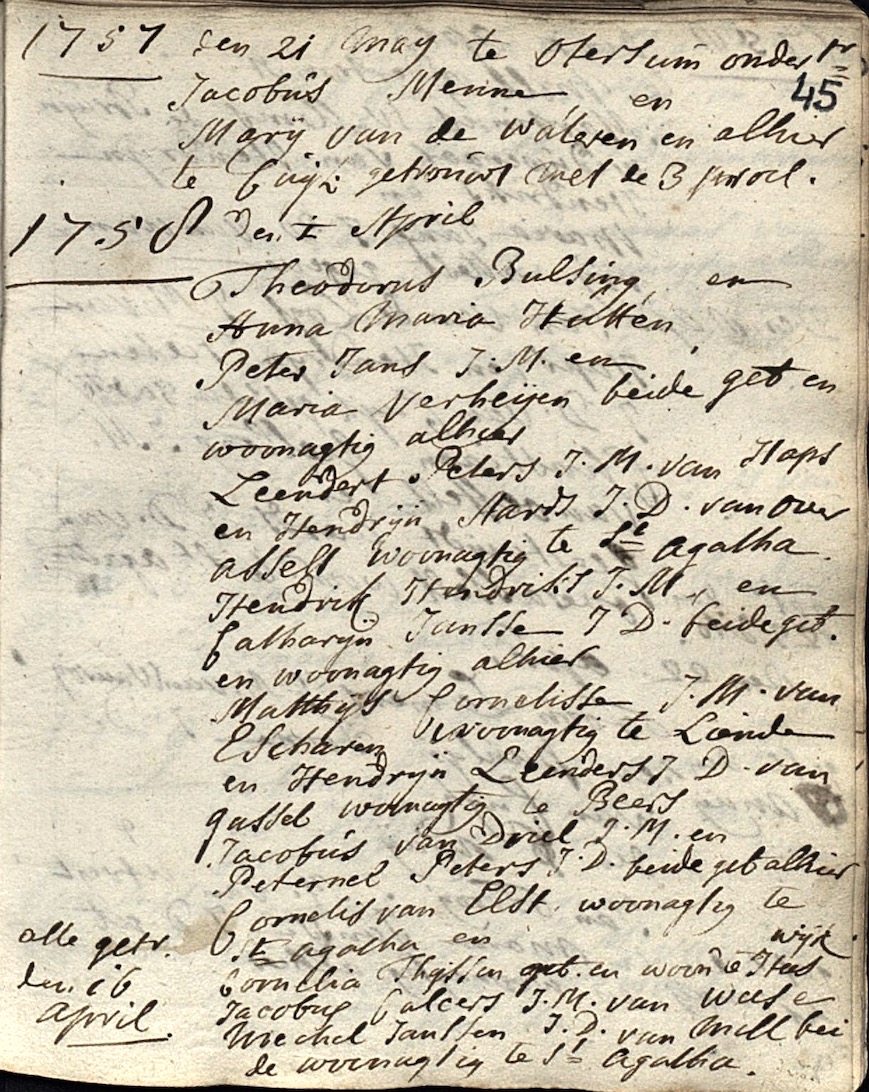 1757 den 21 may te Otersum ondertr
45
Jacobus Menne en
Marij van de Wateren en alhier
te Cuijk getrouwt met de 3 procl.
1758 den 1 April
Theodorus Bulsing en
Anna Maria Hutten
Peter Jans J. M. en
Maria Verheijen beide geb en
woonagtig alhier
Leendert Peters J. M. van Haps
en Hendrijn Aards J. D. van over
asselt woonagtig te St Agatha
Hendrik Hendriks J. M. en
Catharijn Jansse J D. beide geb.
en woonagtig alhier
Matthijs Cornelisse J. M. van
Escharen woonagtig te Linde
en Hendrijn Leenders J D. van
gassel woonagtig te Beers
Jacobus van Driel J. M. en
Peternel Peters J. D. beide geb alhier
Cornelis van Elst woonagtig te
St agatha en
wijk
Cornelia Thijssen geb. en woon te Hees
alle getr.
den 16
April.
Jacobus J. M. van
Mechel Janssen J. D. van Mill bei
de woonagtig te St Agatha.